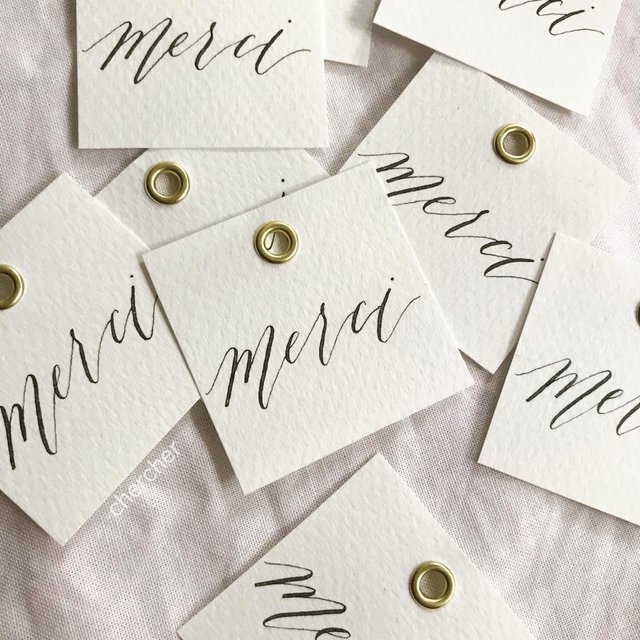 merci
ci
merci
merci
merci
mer
chercher
me